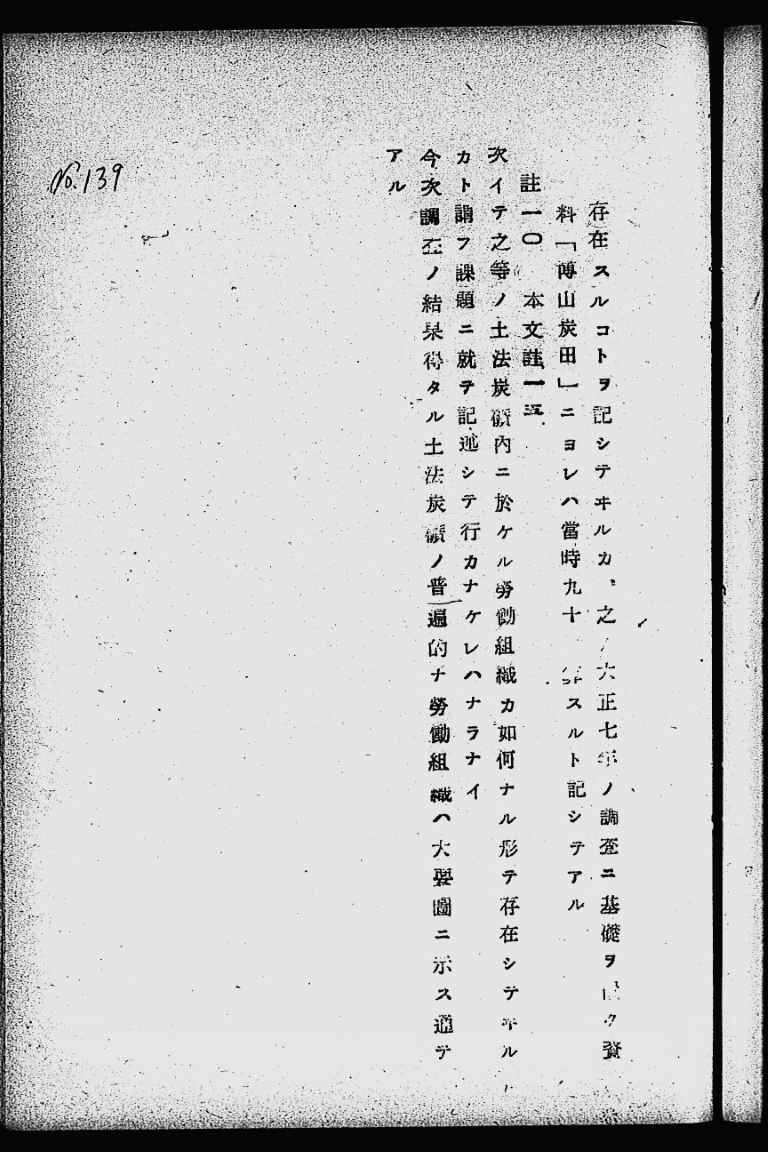 存在スルコトヲ記シテヰルカ、之 大正七年ノ調査ニ基礎ヲ ク資
料「博山炭田」ニヨレハ當時九十 スルト記シテアル
註一〇 本文註一五
次イテ之等ノ土法炭礦內ニ於ケル勞働組織カ如何ナル形テ存在シテヰル
カト謂フ課題ニ就テ記述シテ行カナケレハナラナイ
今次調査ノ結果得タル土法炭礦ノ普遍的ナ勞働組織ハ大要圖ニ示ス通テ
アル
No.139